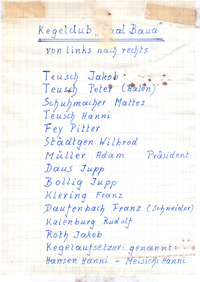 Kegelclub aal Baua
von links nach rechts
Teusch Jakob
Teusch Peter (Halen)
Schuhmacher Mattes
Teusch Hanni
Fey Pitter
Städtgen Wilbrod
Müller Adam Präsident
Daus Jupp
Bollig Jupp
Klering Franz
Dautenbach Franz (Schneider)
Kalenburg Rudolf
Roth Jakob
Kegelaufsetzer: genannt
Hansen Hanni - Meisichs Hanni